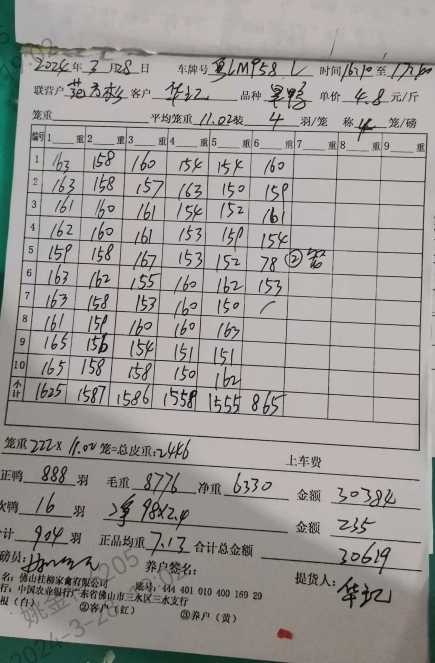 2024年 3 月28 日 车牌号 粤LM958L 时间16:10 至 17:00
联营户 客户 华记 品种 单价 4.8 元/斤
笼重 平均笼重 11.02 装 4 羽/笼 称 4 笼/磅
编号 1 重 2 重 3 重 4 重 5 重 6 重 7 重 8 重 9 重
1 163 158 160 154 154 160
2 163 158 157 163 150 159
3 161 160 161 154 152 161
4 162 160 161 153 159 154
5 159 158 167 153 152 78 ② 笼
6 163 162 155 160 162 153
7 163 158 153 160 150 /
8 161 159 160 160 163
9 165 156 154 151 151
10 165 158 158 150 162
小计 1625 1587 1586 1558 1555 865
笼重 222 × 11.02 笼=总皮重: 2446 上车费
正鸭 888 羽 毛重 8776 净重 6330 金额 30384
次鸭 16 羽 净 98×2.4 金额 235
合计 904 羽 正品均重 7.13 合计总金额 30619
磅员: 养户签名: 提货人: 华记
名: 佛山桂柳家禽有限公司 账号: 444 401 010 400 169 29
行: 中国农业银行广东省佛山市三水区三水支行
根(白) ②客户(红) ③养户(黄)